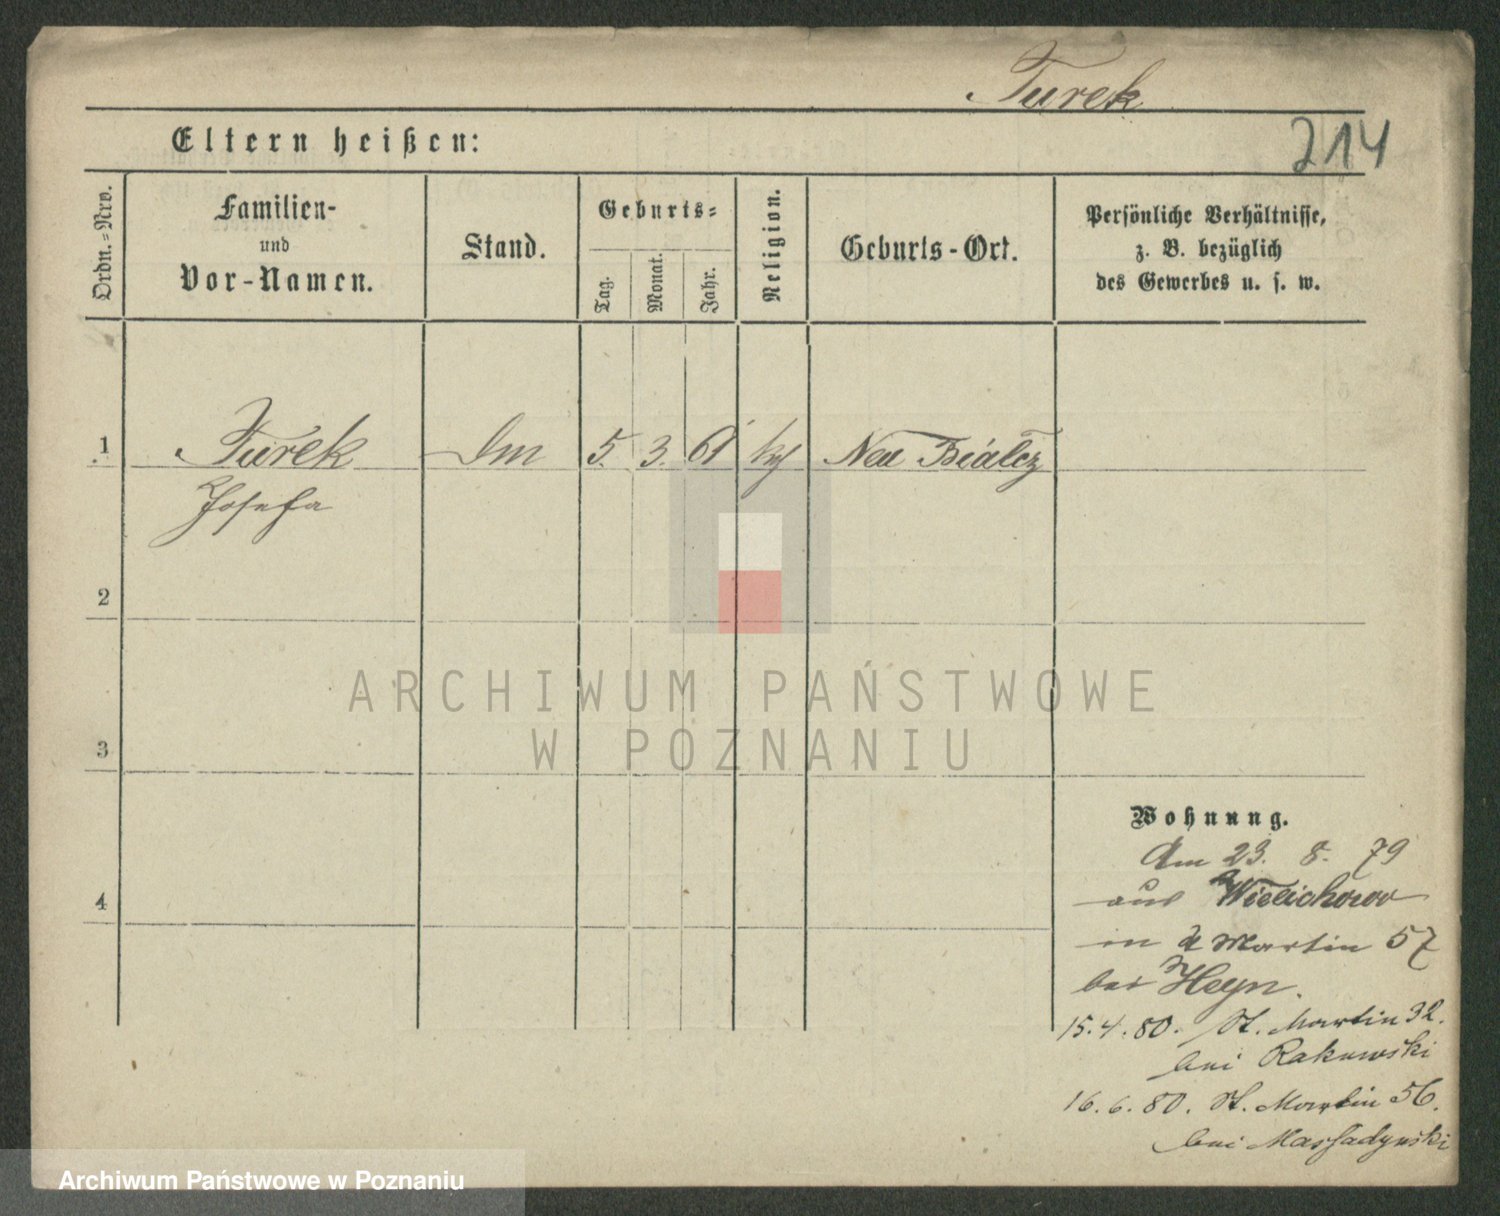 Turek
Eltern heißen:
214
Ordn.-Nro.
Familien-
und
Vor-Namen.
Stand.
Geburts-
Tag.
Monat.
Jahr.
Religion.
Geburts-Ort.
Persönliche Verhältnisse,
z. B. bezüglich
des Gewerbes u. s. w.
1 Turek 5. 3. 61 Neu Bialcz
Josefa
2
3
4
Wohnung.
Am 23. 8. 79
aus Wielichowo
in St Martin 57
bei Heyn.
15. 4. 80. St. Martin 32.
bei Rakowski
16. 6. 80. St. Martin 56.
bei
ARCHIWUM PAŃSTWOWE
W POZNANIU
Archiwum Państwowe w Poznaniu